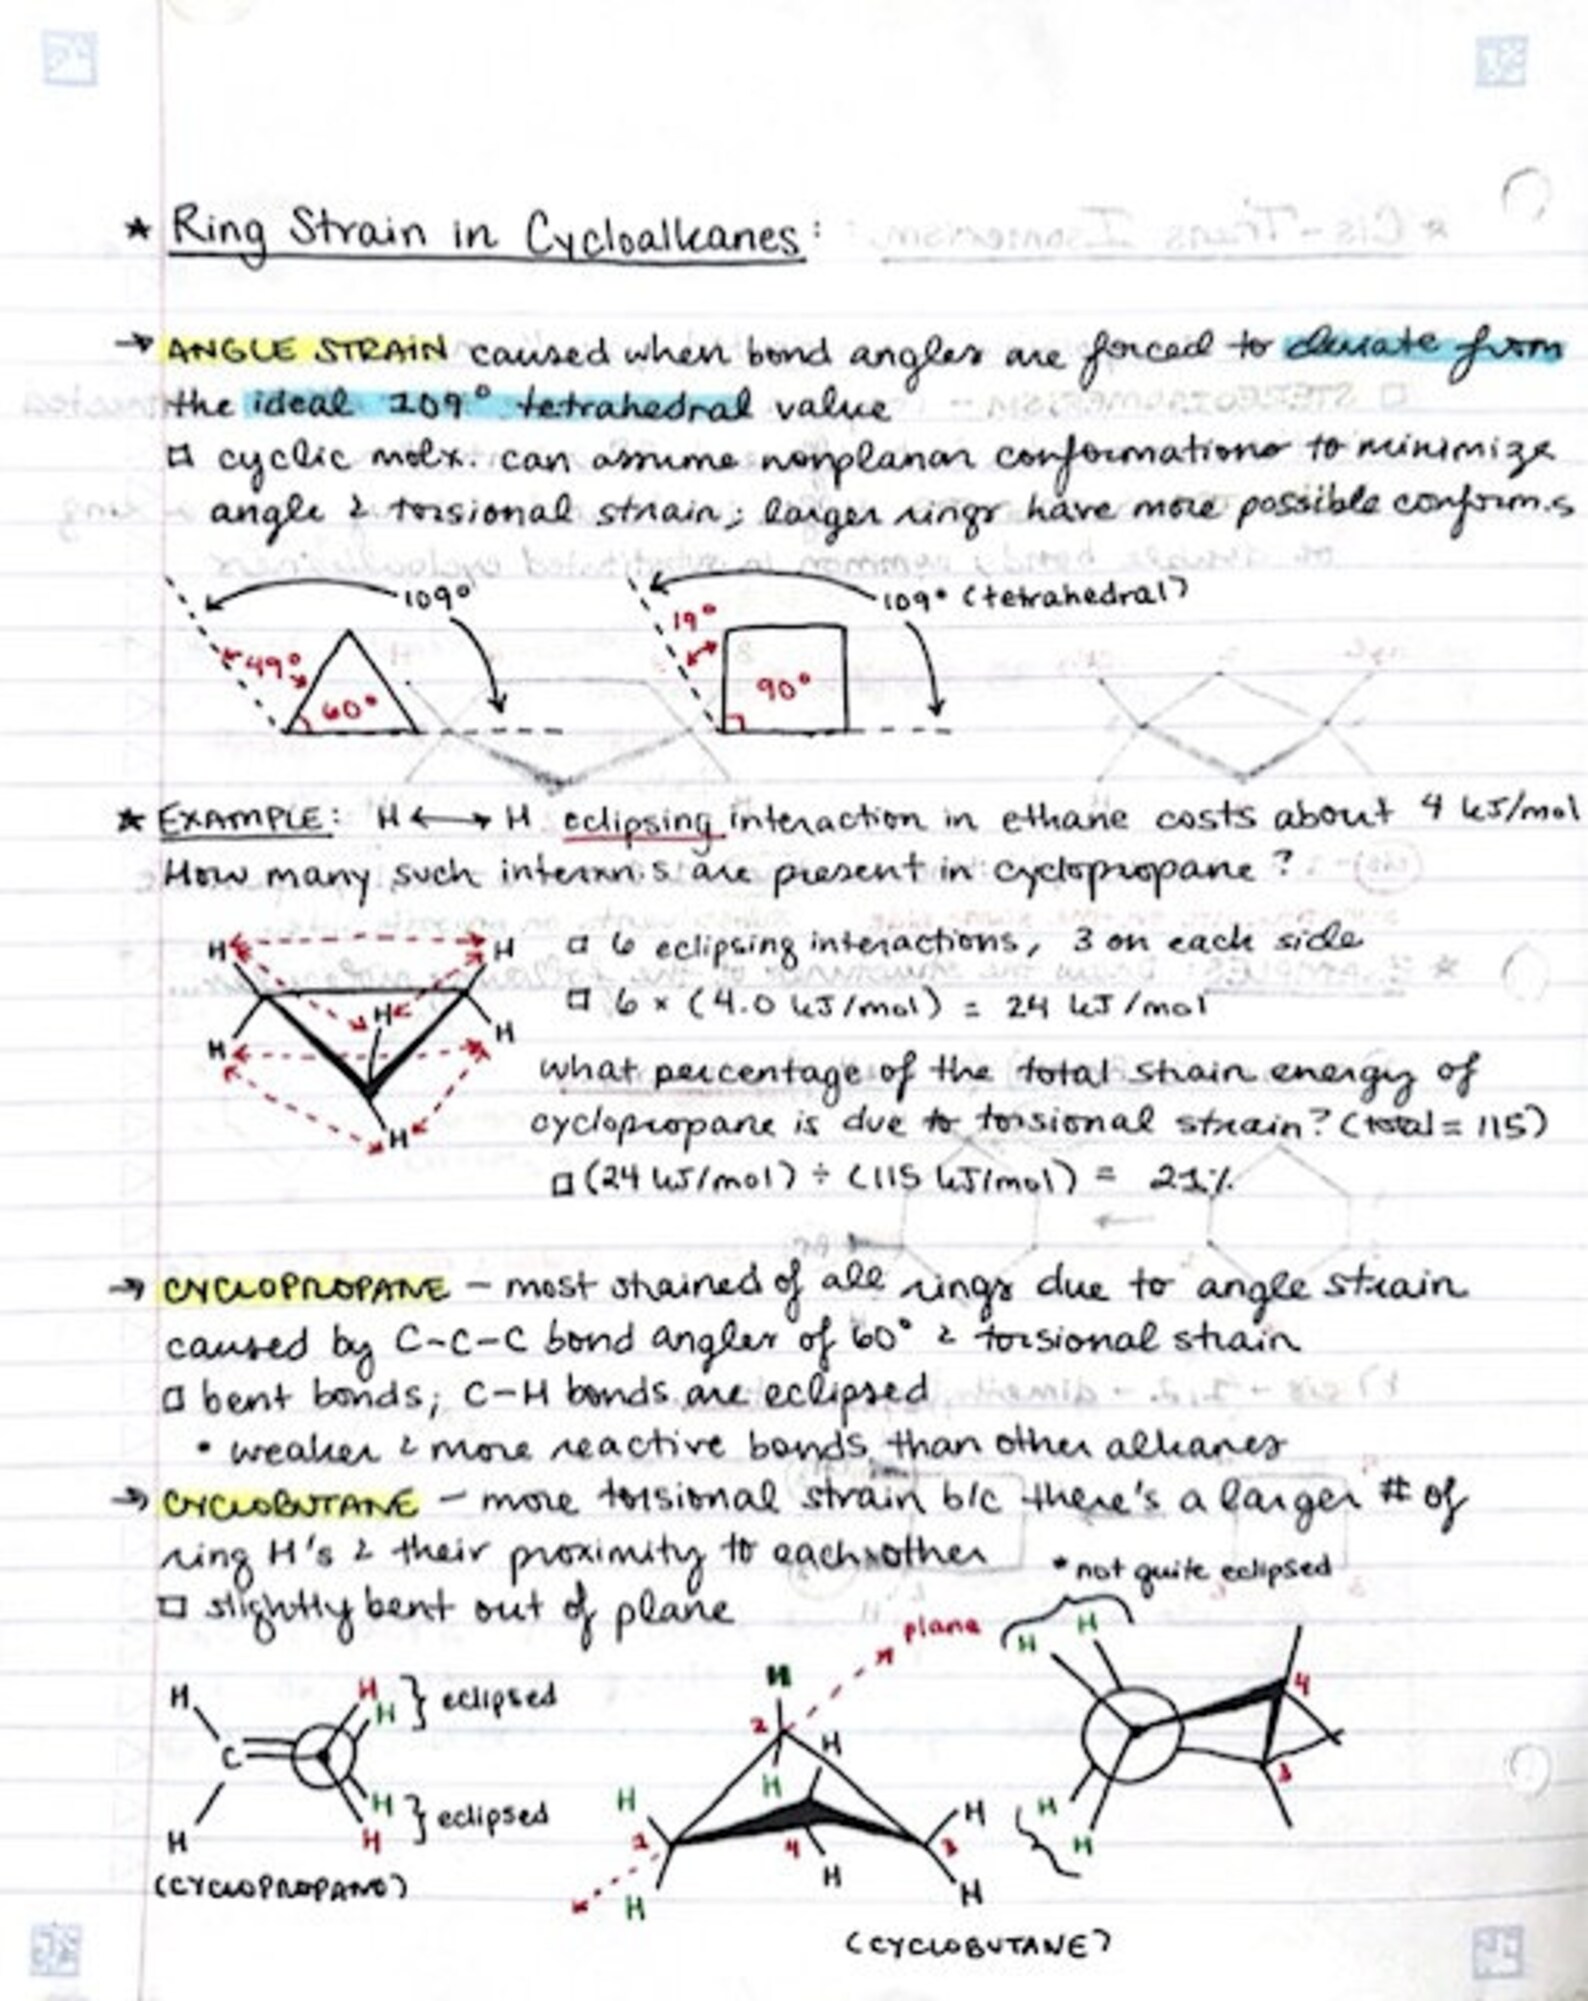 * Ring Strain in Cycloalkanes:
→ ANGLE STRAIN caused when bond angles are forced to deviate from
the ideal 109° tetrahedral value
□ cyclic molx. can assume nonplanar conformations to minimize
angle & torsional strain; larger rings have more possible conform.s
109°
49°
60°
19°
109° (tetrahedral)
90°
* EXAMPLE: H ↔ H eclipsing interaction in ethane costs about 4 kJ/mol
How many such interxn.s are present in cyclopropane?
H H
H
H H
H
□ 6 eclipsing interactions, 3 on each side
□ 6 × (4.0 kJ/mol) = 24 kJ/mol
what percentage of the total strain energy of
cyclopropane is due to torsional strain? (total = 115)
□ (24 kJ/mol) ÷ (115 kJ/mol) = 21%
→ CYCLOPROPANE – most strained of all rings due to angle strain
caused by C-C-C bond angles of 60° & torsional strain
□ bent bonds; C-H bonds are eclipsed
• weaker & more reactive bonds than other alkanes
→ CYCLOBUTANE – more torsional strain b/c there's a larger # of
ring H's & their proximity to each other
□ slightly bent out of plane
* not quite eclipsed
H H H } eclipsed
C
H H H } eclipsed
(CYCLOPROPANE)
plane
H
2 H
H H
1 4 3 H
H H H
(CYCLOBUTANE)
H H
4
3
H
H